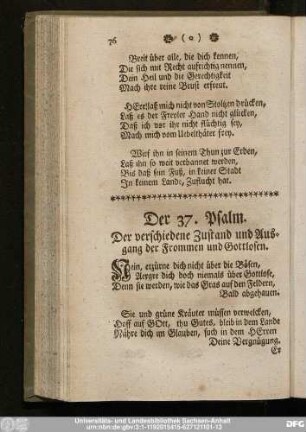 76 ( o )
Breit über alle, die dich kennen,
Die sich mit Recht aufrichtig nennen,
Dein Heil und die Gerechtigkeit
Mach ihre reine Brust erfreut.
HErr laß mich nicht von Stoltzen drücken,
Laß es der Frevler Hand nicht glücken,
Daß ich vor ihr nicht flüchtig sey,
Mach mich vom Uebelthäter frey.
Wirf ihn in seinem Thun zur Erden,
Laß ihn so weit verbannet werden,
Bis daß sein Fuß, in keiner Stadt
In keinem Lande, Zuflucht hat.
Der 37. Psalm.
Der verschiedene Zustand und Aus-
gang der Frommen und Gottlosen.
Nein, erzürne dich nicht über die Bösen,
Aergre dich doch niemals über Gottlose,
Denn sie werden, wie das Gras auf den Feldern,
Bald abgehauen.
Sie und grüne Kräuter müssen verwelcken,
Hoff auf GOtt, thu Gutes, bleib in dem Lande
Nähre dich im Glauben, such in dem HErren
Deine Vergnügung.
Er
Universitäts- und Landesbibliothek Sachsen-Anhalt
urn:nbn:de:gbv:3:1-1192015415-627121101-13
DFG